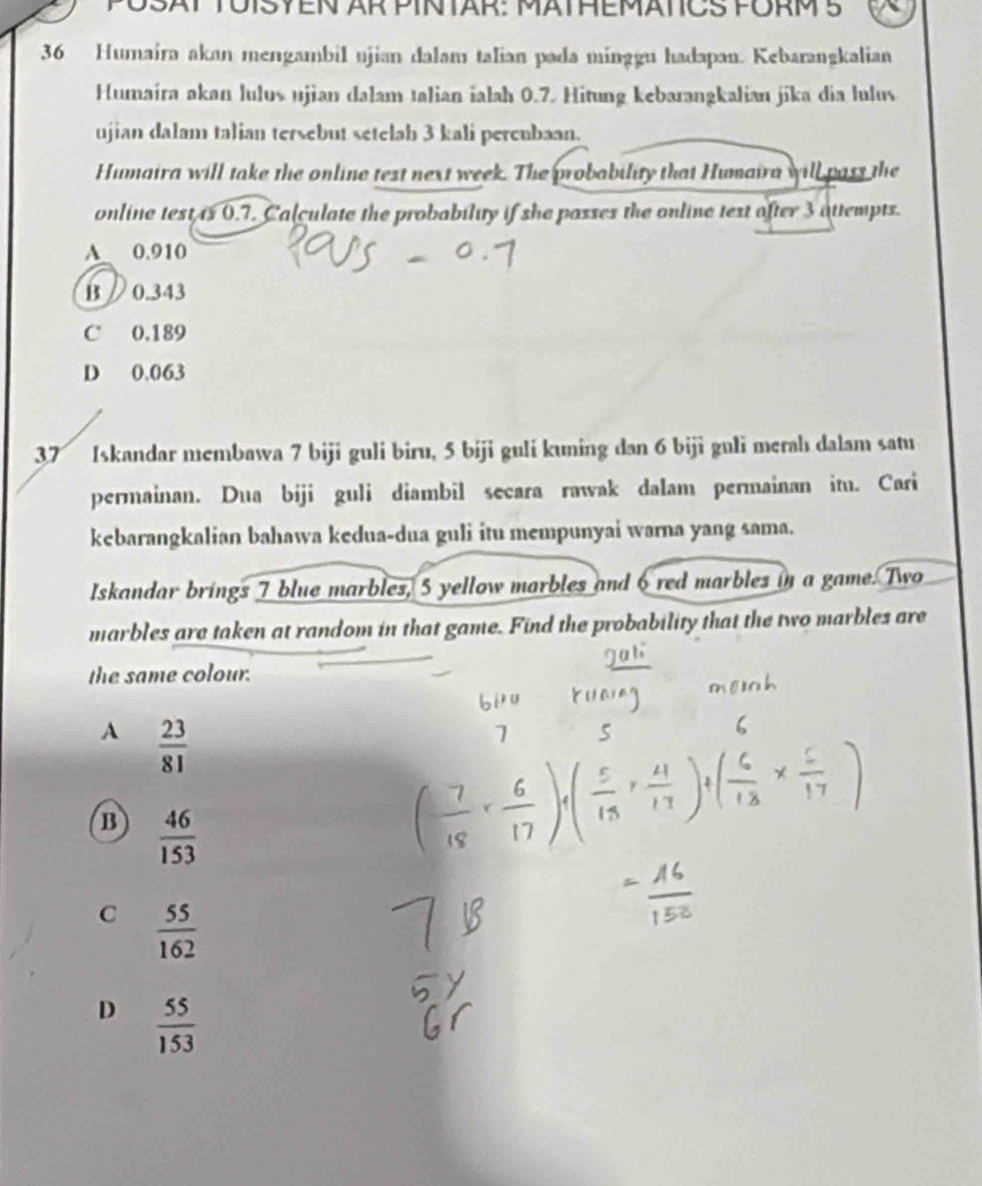 PUSAT TUISYEN AR PINTAR: MATHEMATICS FORM 5
36 Humaira akan mengambil ujian dalam talian pada minggu hadapan. Kebarangkalian
Humaira akan lulus ujian dalam talian ialah 0.7. Hitung kebarangkalian jika dia lulus
ujian dalam talian tersebut setelah 3 kali percubaan.
Humaira will take the online test next week. The probability that Humaira will pass the
online test is 0.7. Calculate the probability if she passes the online test after 3 attempts.
A 0.910
Pass - 0.7
B 0.343
C 0.189
D 0.063
37 Iskandar membawa 7 biji guli biru, 5 biji guli kuning dan 6 biji guli merah dalam satu
permainan. Dua biji guli diambil secara rawak dalam permainan itu. Cari
kebarangkalian bahawa kedua-dua guli itu mempunyai warna yang sama.
Iskandar brings 7 blue marbles, 5 yellow marbles and 6 red marbles in a game. Two
marbles are taken at random in that game. Find the probability that the two marbles are
the same colour.
guli
biru kuning merah
7 5 6
A 23/81
(7/18 × 6/17) + (5/18 × 4/17) + (6/18 × 5/17)
B 46/153
= 46/153
C 55/162
7 B
5 Y
6 r
D 55/153